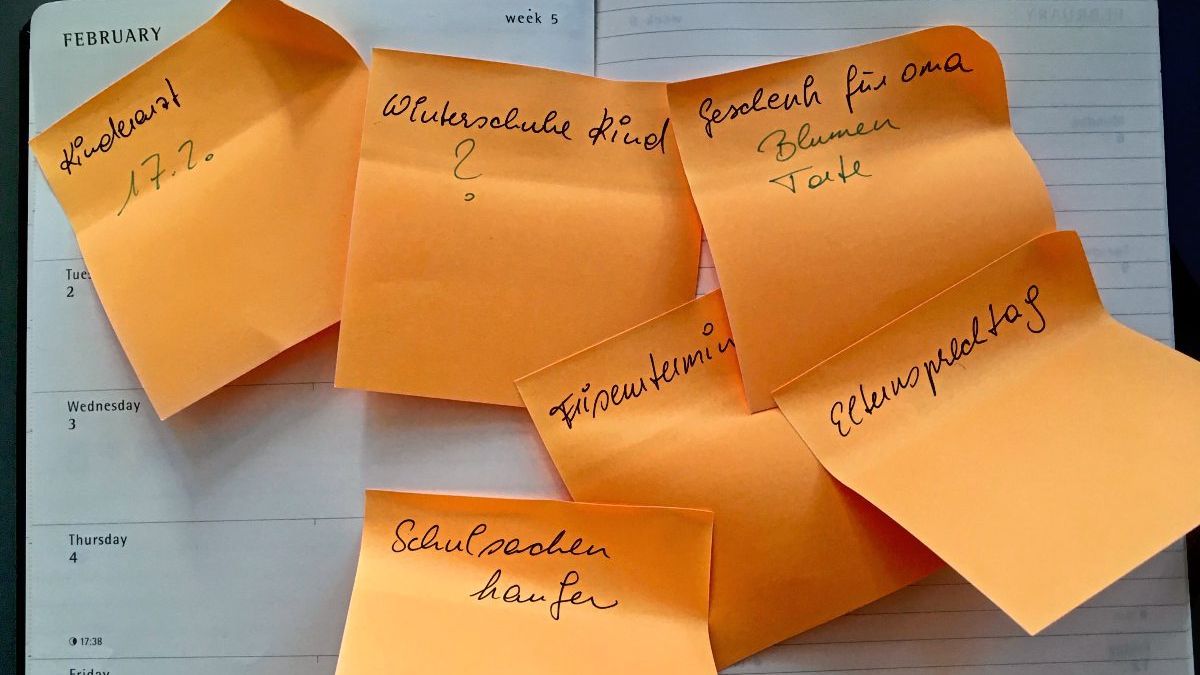 FEBRUARY
week 5
Kinderarzt
17.2.
Winterschuhe Kind
?
Geschenk für Oma
Blumen
Torte
Tues
2
Wednesday
3
Thursday
4
17:38
Friday
Frisörtermin
Elternsprechtag
Schulsachen
kaufen